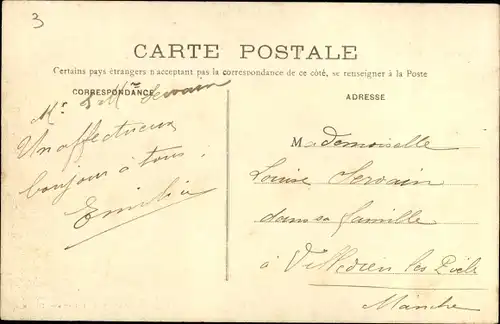 3
CARTE POSTALE
Certains pays étrangers n'acceptant pas la correspondance de ce côté, se renseigner à la Poste
CORRESPONDANCE
ADRESSE
Mr & Mme Servain
Un affectueux
bonjour à tous.
Emilie
Mademoiselle
Louise Servain
dans sa famille
à Villedieu les Poêles
Manche